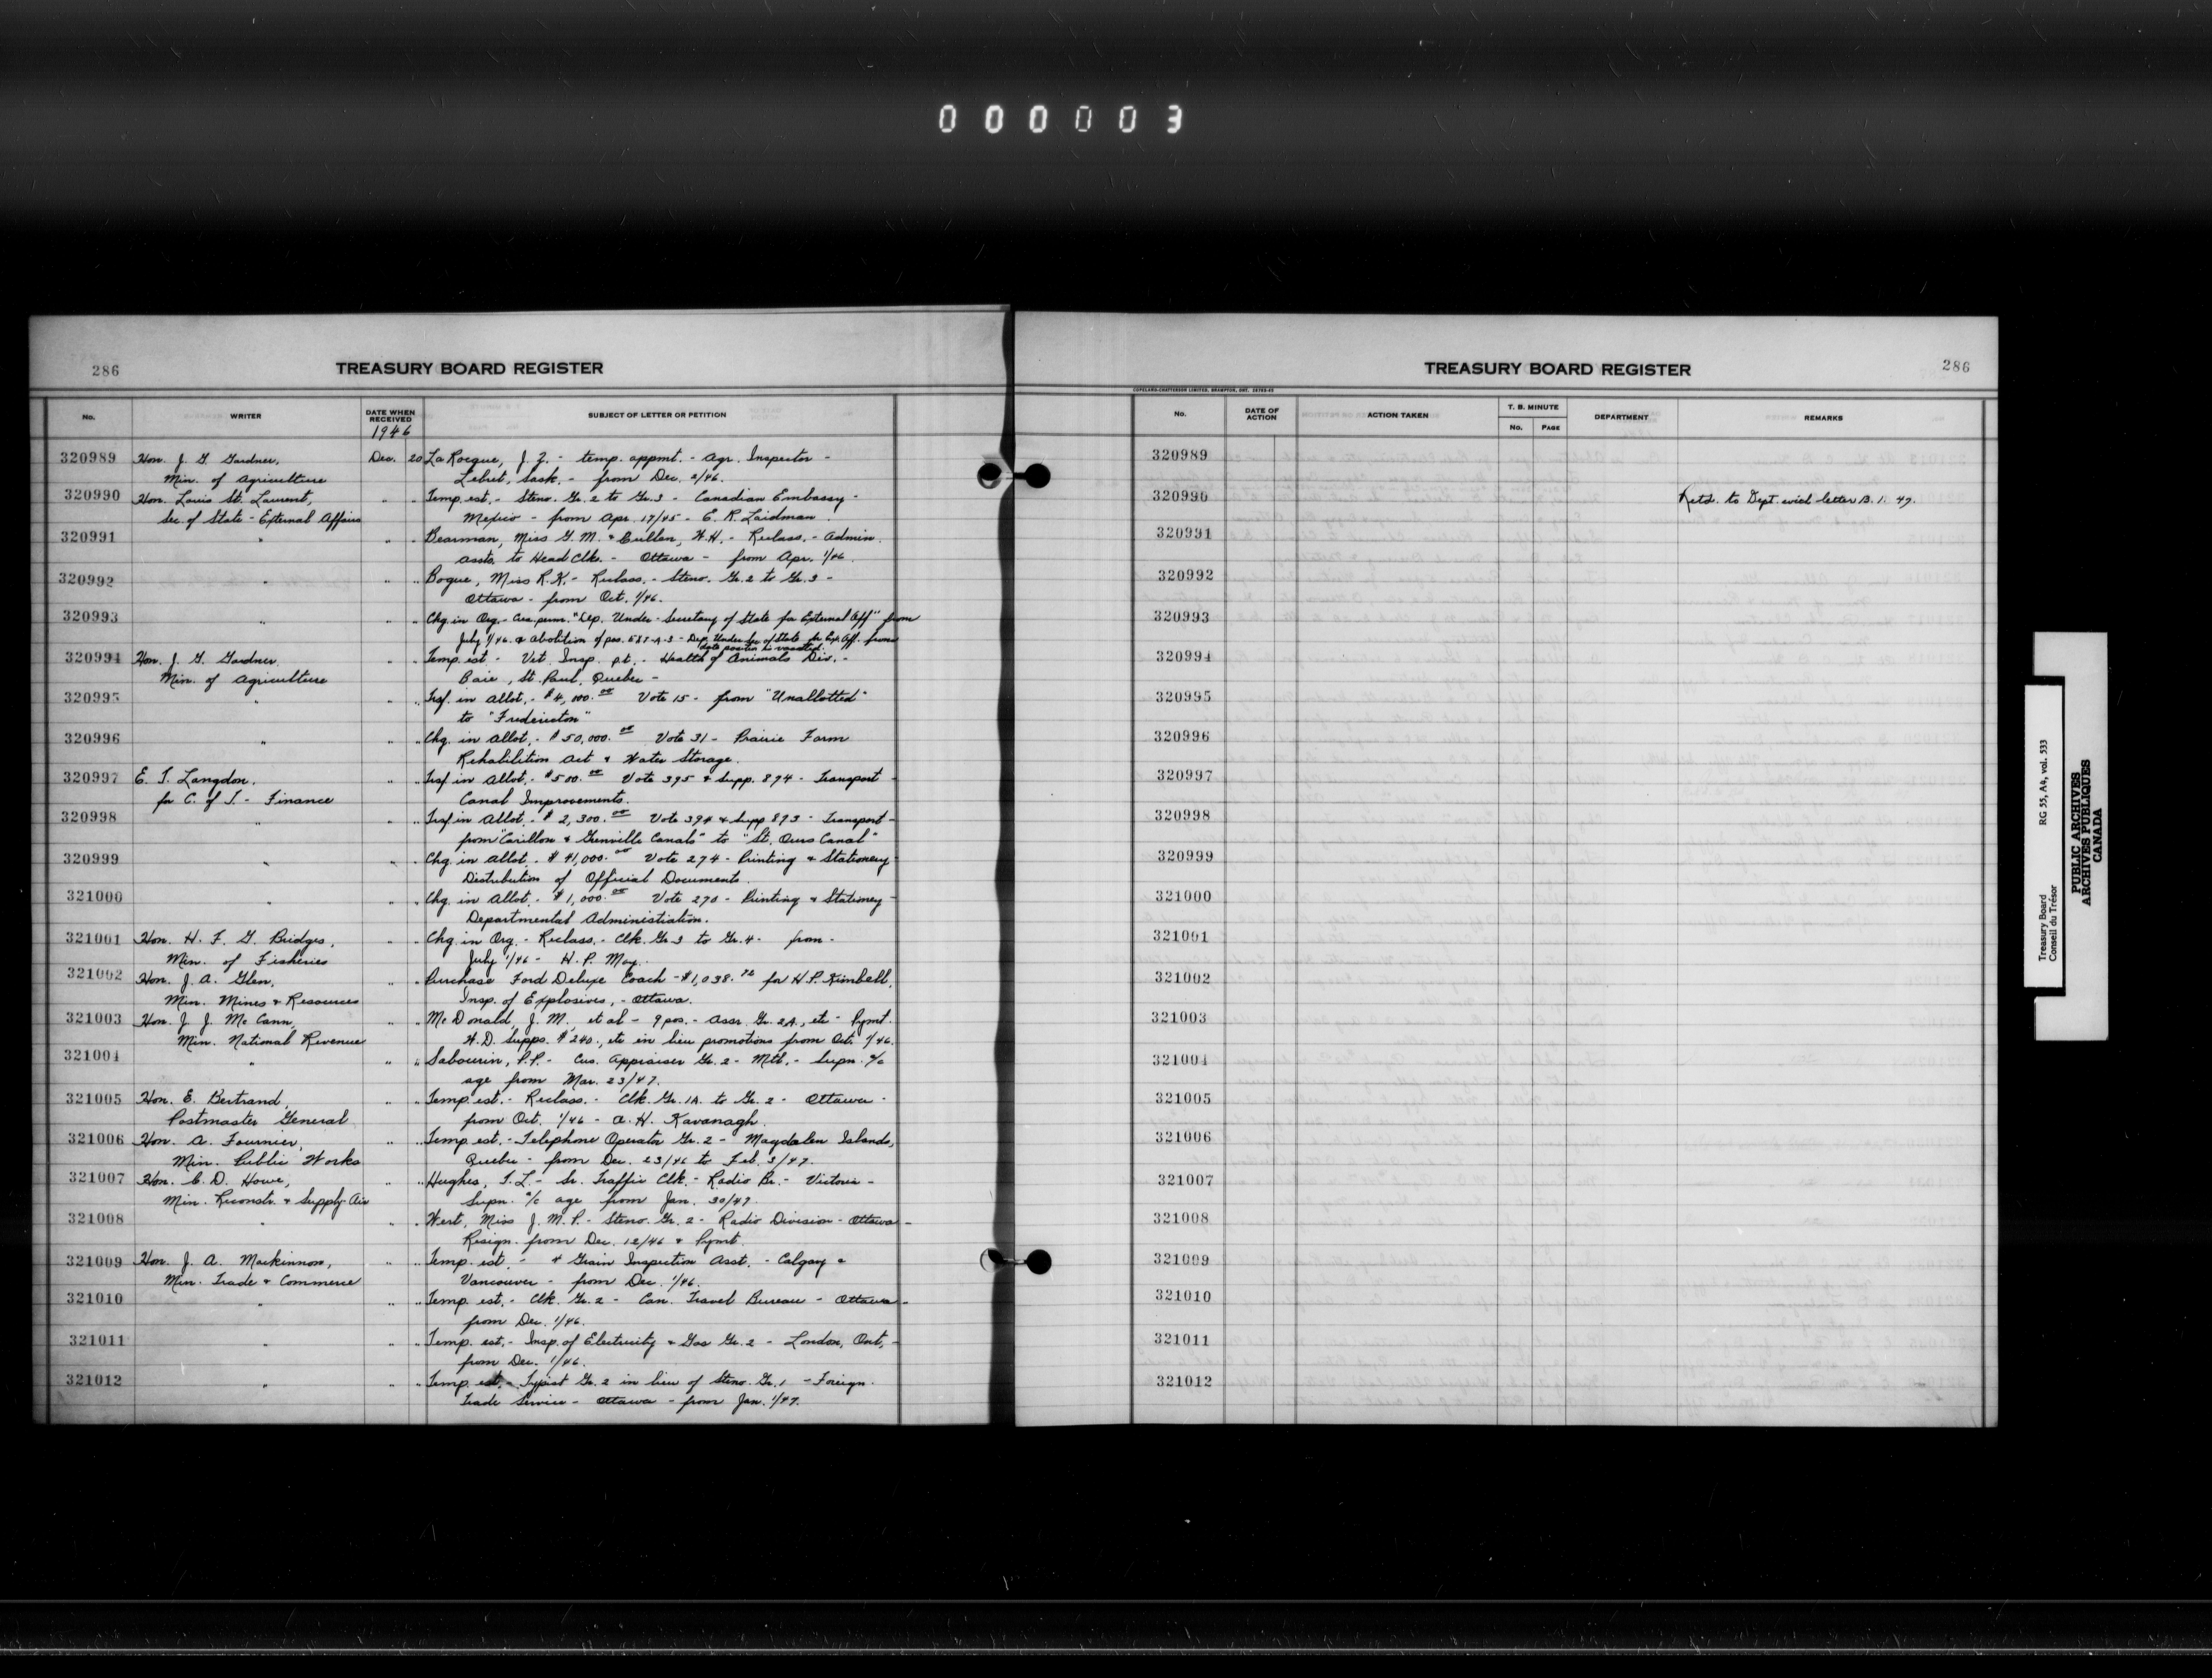 000003
286
TREASURY BOARD REGISTER
No. WRITER DATE WHEN RECEIVED SUBJECT OF LETTER OR PETITION
1946
320989 Hon. J. G. Gardner, Dec. 20 La Rocque, J. Z. - temp. appmt. - Agr. Inspector -
Min. of Agriculture Lebret, Sask. - from Dec. 2/46.
320990 Hon. Louis St. Laurent, " " Temp. est. - Steno. Gr. 2 to Gr. 3 - Canadian Embassy -
Sec. of State - External Affairs Mexico - from Apr. 17/45 - E. R. Laidman.
320991 " " " Bearman, Miss G. M. & Cullen, W. H. - Reclass. - Admin.
Assts. to Head Clk. - Ottawa - from Apr. 1/46.
320992 " " " Bogue, Miss R. K. - Reclass. - Steno. Gr. 2 to Gr. 3 -
Ottawa - from Oct. 1/46.
320993 " " " Chg. in Org. - Crea. perm. "Dep. Under-Secretary of State for External Aff" from
July 1/46. & abolition of pos. - Dep. Under Sec of State for Ext. Aff. from
date position is vacated.
320994 Hon. J. G. Gardner, " " Temp. est - Vet. Insp. p.t. - Health of Animals Div. -
Min. of Agriculture Baie, St. Paul, Quebec -
320995 " " " Trsf. in Allot. - $4,100.00 Vote 15 - from "Unallotted"
to "Fredericton"
320996 " " " Chg. in Allot. - $50,000.00 Vote 31 - Prairie Farm
Rehabilition Act & Water Storage.
320997 E. T. Langdon, " " Trsf in Allot. - $500.00 Vote 395 & Supp. 894 - Transport -
for C. of T. - Finance Canal Improvements.
320998 " " " Trsf in Allot. - $2,300.00 Vote 394 & Supp 893 - Transport -
from "Carillon & Grenville Canals" to "St. Ours Canal"
320999 " " " Chg. in Allot. - $41,000.00 Vote 274 - Printing & Stationery -
Distribution of Official Documents.
321000 " " " Chg. in Allot. - $1,000.00 Vote 270 - Printing & Stationery -
Departmental Administiation.
321001 Hon. H. F. G. Bridges, " " Chg. in Org. - Reclass. - Clk. Gr 3 to Gr. 4 - from -
Min. of Fisheries July 1/46 - H. P. May.
321002 Hon. J. A. Glen, " " Purchase Ford Deluxe Coach - $1,038.76 for H. P. Kimbell,
Min. Mines & Resources Insp. of Explosives, - Ottawa.
321003 Hon. J. J. McCann, " " McDonald, J. M., et al - 9 pos. - Assr. Gr. 2A., etc - Pymt.
Min. National Revenue W. D. Supps. $240., etc in lieu promotions from Oct. 1/46.
321004 " " " Sabourin, P. P. - Cus. Appraiser Gr. 2 - Mtl. - Supn. a/c
age from Mar. 23/47.
321005 Hon. E. Bertrand, " " Temp est. - Reclass. - Clk. Gr. 1A. to Gr. 2 - Ottawa -
Postmaster General from Oct. 1/46 - A. H. Kavanagh.
321006 Hon. A. Fournier, " " Temp. est. - Telephone Operator Gr. 2 - Magdalen Islands,
Min. Public Works Quebec - from Dec. 23/46 to Feb. 3/47.
321007 Hon. C. D. Howe, " " Hughes, T. L. - Sr. Traffic Clk. - Radio Br. - Victoria -
Min. Reconstr. & Supply-Air Supn. a/c age from Jan. 30/47.
321008 " " " Wert, Miss J. M. P. - Steno. Gr. 2 - Radio Division - Ottawa -
Resign. from Dec. 12/46 & Pymt.
321009 Hon. J. A. Mackinnon, " " Temp. est. - 4 Grain Inspection Asst. - Calgary &
Min. Trade & Commerce Vancouver - from Dec. 1/46.
321010 " " " Temp. est. - Clk. Gr. 2 - Can. Travel Bureau - Ottawa -
from Dec. 1/46.
321011 " " " Temp. est. - Insp. of Electricity & Gas Gr. 2 - London, Ont, -
from Dec. 1/46.
321012 " " " Temp. est. - Typist Gr. 2 in lieu of Steno. Gr. 1 - Foreign
Trade Service - Ottawa - from Jan. 1/47.
TREASURY BOARD REGISTER
286
COPELAND-CHATTERSON LIMITED, BRAMPTON, ONT.
No. DATE OF ACTION ACTION TAKEN T. B. MINUTE No. PAGE DEPARTMENT REMARKS
320989
320990 Retd. to Dept. wich letter 13. 1. 47.
320991
320992
320993
320994
320995
320996
320997
320998
320999
321000
321001
321002
321003
321004
321005
321006
321007
321008
321009
321010
321011
321012
Treasury Board RG 55, A4, vol. 533
Conseil du Trésor
PUBLIC ARCHIVES
ARCHIVES PUBLIQUES
CANADA